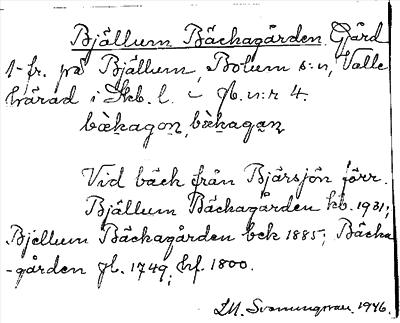 Bjällum Bäckagården Gård
1-fr. på Bjällum, Bolum s:n, Valle
härad i Skb. l. – Jb. n:r 4.
bækagoṇ, bækagaṇ
Vid bäck från Bjärsjön förr.
Bjällum Bäckagården kb. 1931;
Bjellum Bäckagården bek 1885; Bäcka
-gården jb. 1749; hf. 1800.
D.M. Svanungsson. 1946.